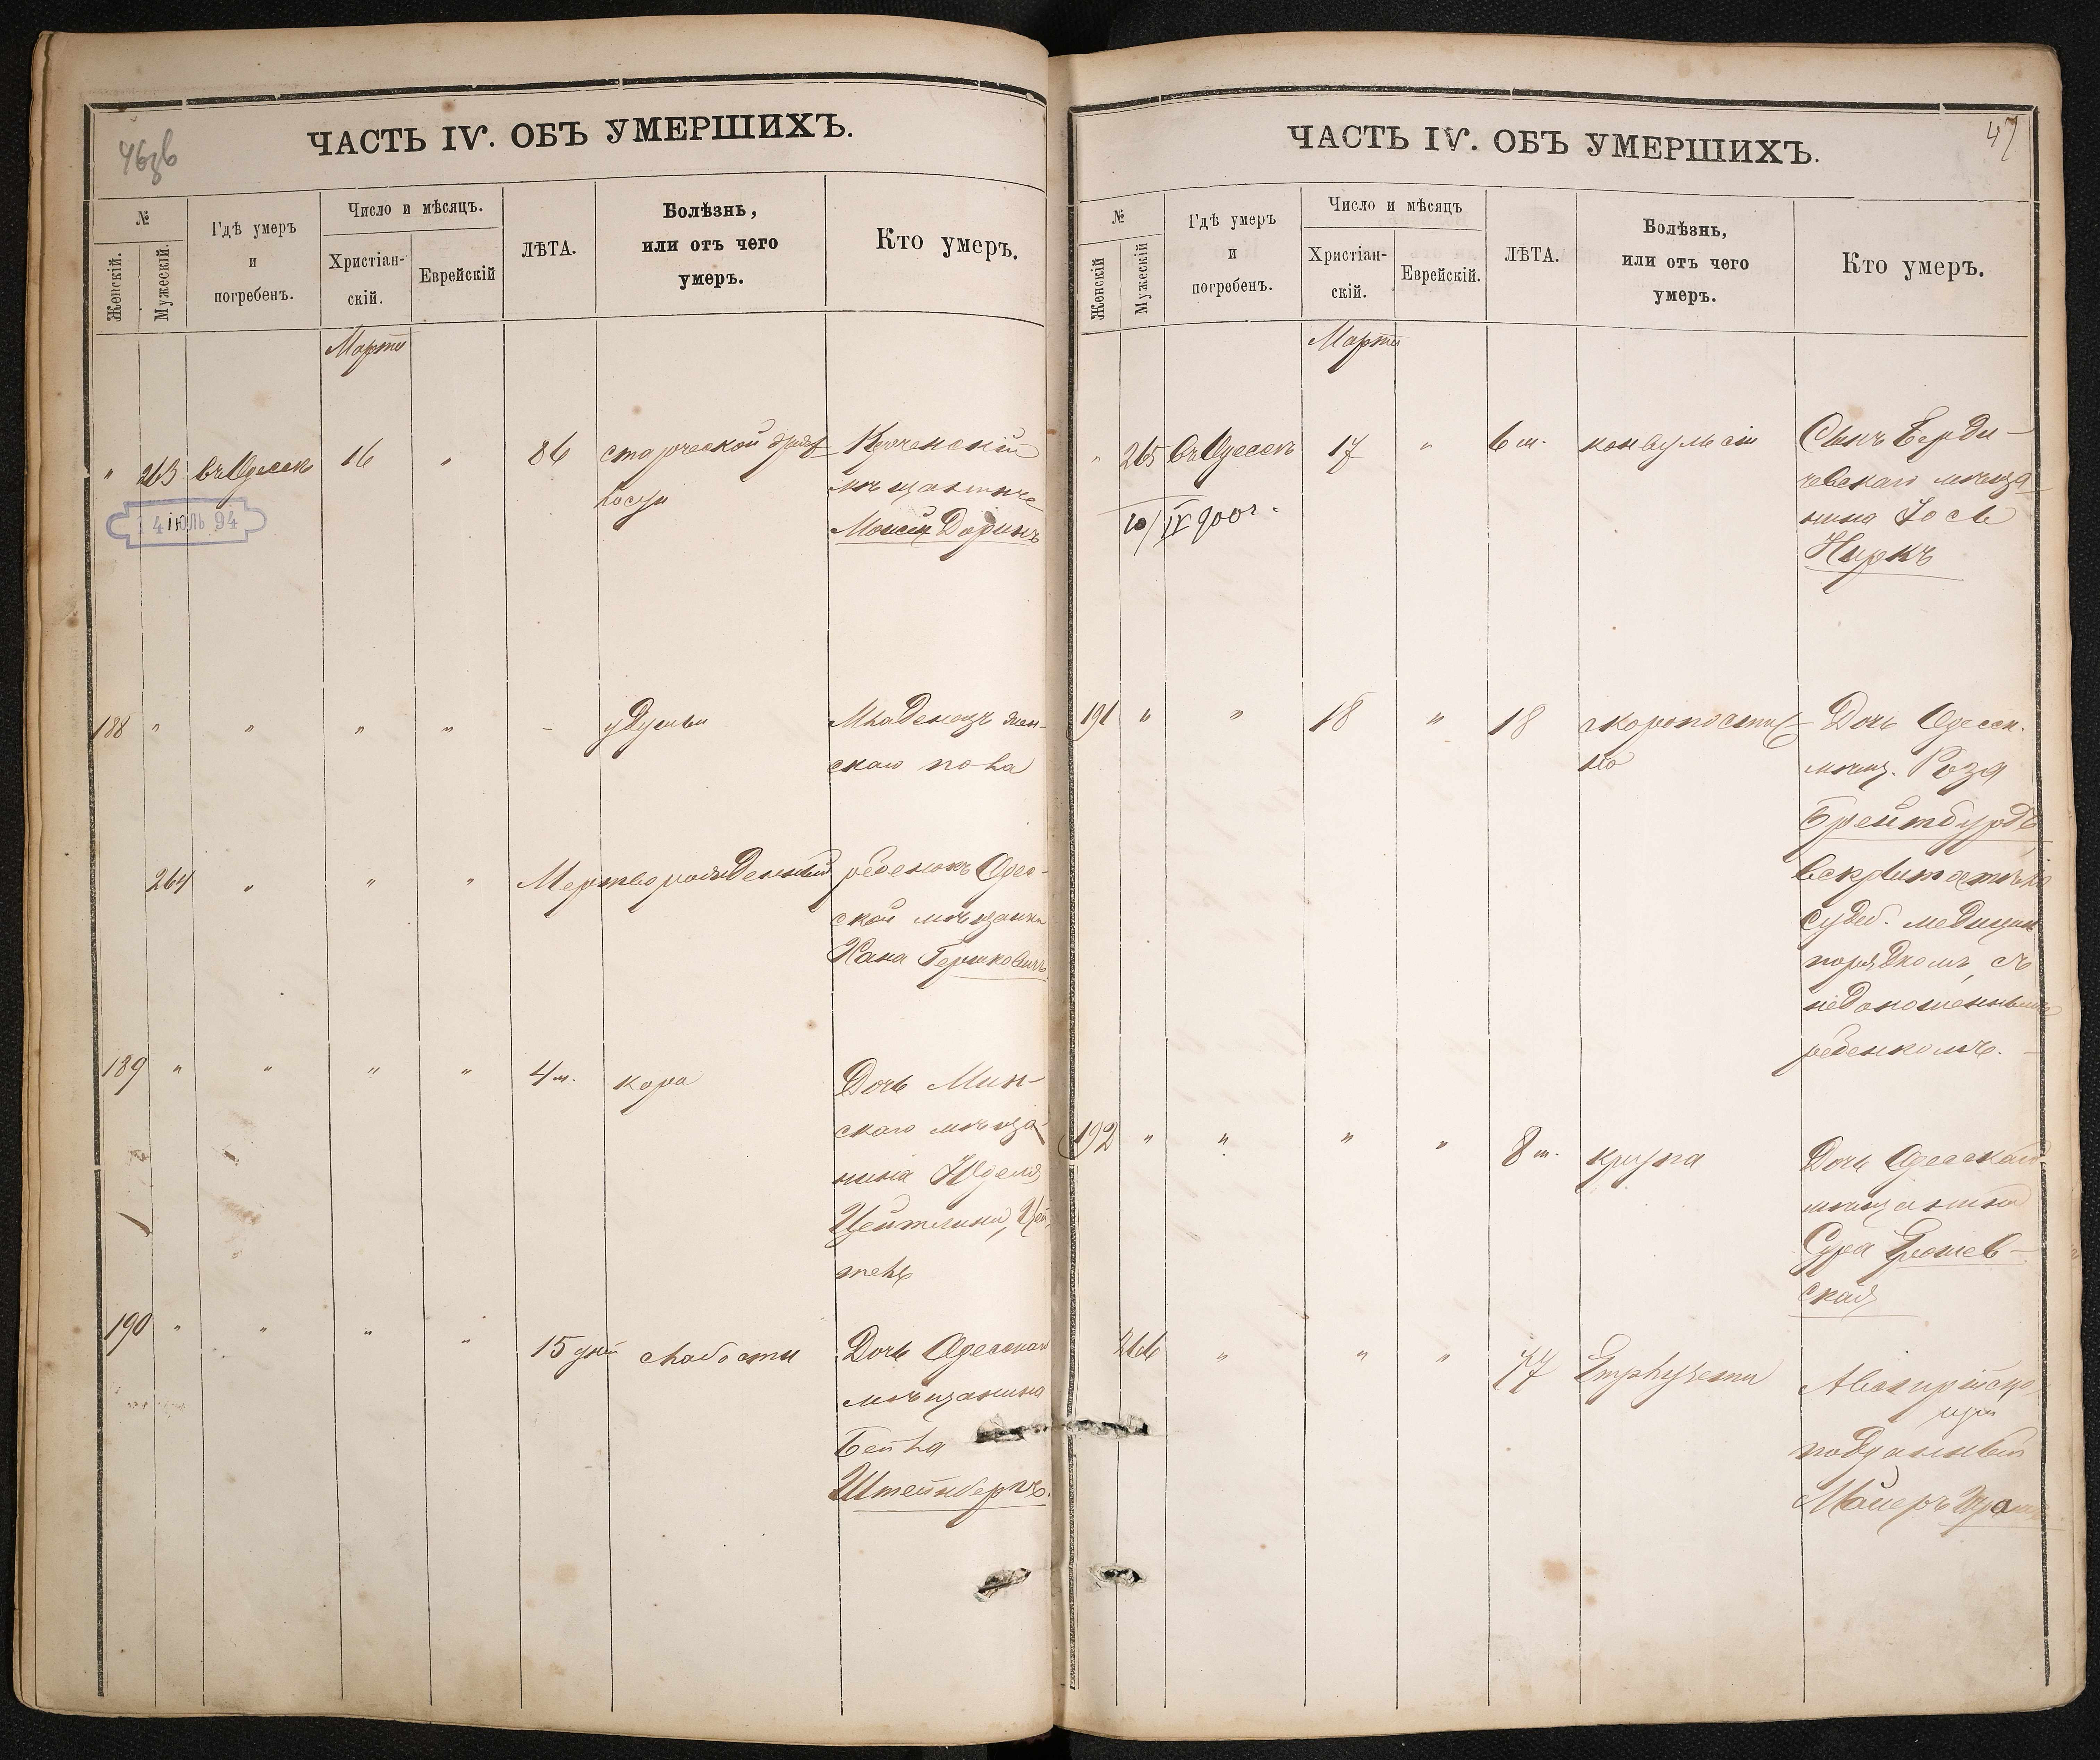 46об
ЧАСТЬ IV. ОБЪ УМЕРШИХЪ.
№
Женскій.
Мужескій.
Гдѣ умеръ
и
погребенъ.
Число и мѣсяцъ.
Христіан-
скій.
Еврейскій
ЛѢТА.
Болѣзнь,
или отъ чего
умеръ.
Кто умеръ.
Марта
" 263 въ Одессѣ 16 " 86 старческой
мѣщанинъ
14 ІЮЛЬ 94
188 " " " " - Младенецъ жен-
скаго пола
264 " " " Мертворожденный ребенокъ Одес-
ской мѣщанки
Хана Гершковичъ
189 " " " " 4 м. Дочь Мин-
скаго мѣща-
нина
Цейтлина,
190 " " " " 15 дней слабости Дочь Одесскаго
мѣщанина
Бейла
Штейнбергъ.
47
ЧАСТЬ IV. ОБЪ УМЕРШИХЪ.
№
Женскій
Мужескій
Гдѣ умеръ
и
погребенъ.
Число и мѣсяцъ
Христіан-
скій.
Еврейскій.
ЛѢТА.
Болѣзнь,
или отъ чего
умеръ.
Кто умеръ.
Марта
" 265 въ Одессѣ 17 " 6 м. конвульсіи Сынъ Берди-
чевскаго мѣща-
нина
10/IV 900 г.
191 " " 18 " 18 скоропостиж-
но
Дочь Одесск.
мѣщ. Роза
Брейтбурдъ
судеб. медицин
порядкомъ, съ
недоношеннымъ
ребенкомъ.
192 " " " " 8 м. крупа Дочь Одесскаго
мѣщанина
Сура
ская
266 " " " 77
подданный
Майеръ